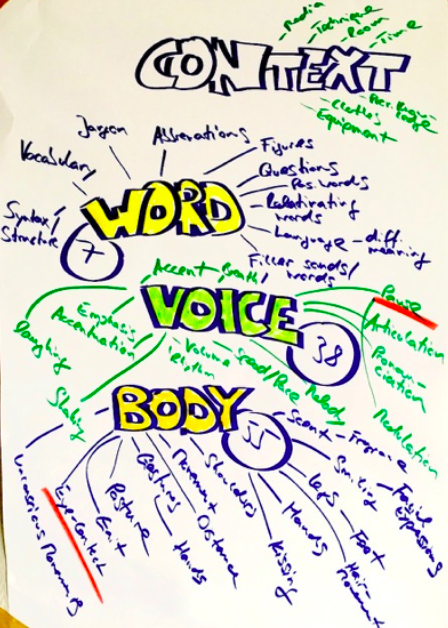 - Media
- Technique
- Room
- Time
CONTEXT
- Clothes
- Equipment
Jargon
Abbreviations
Vocabulary
Figures
Questions
Pos. words
Syntax/
Structure
WORD
Relativating
words
Language - diff.
meaning
7
Filler sounds/
words
Accent
Breath/
Pause
Emphasis/
Accentuation
VOICE
Articulation
Laughing
38
Pronoun-
ciation
- Volume
Rhythm
Speed/Pace
Melody
Modulation
Shaking
BODY
55
Scent - Fragrance
Smiling
Facial
Expressions
Shoulders
Movement
Gestures
Posture
Gait
Eye-Contact
Unconscious Movements
Legs - Foot
Hands
Distance
Hands
Kissing
Hair-
Movement